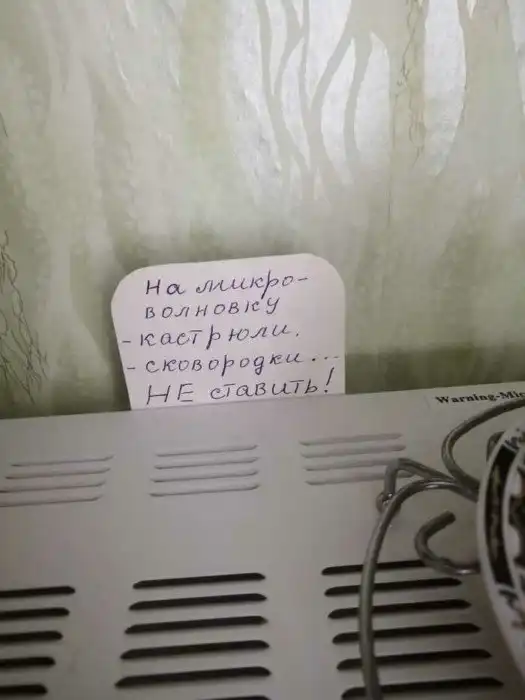 На микро-
волновку
- кастрюли.
- сковородки...
НЕ ставить!
Warning-Mic